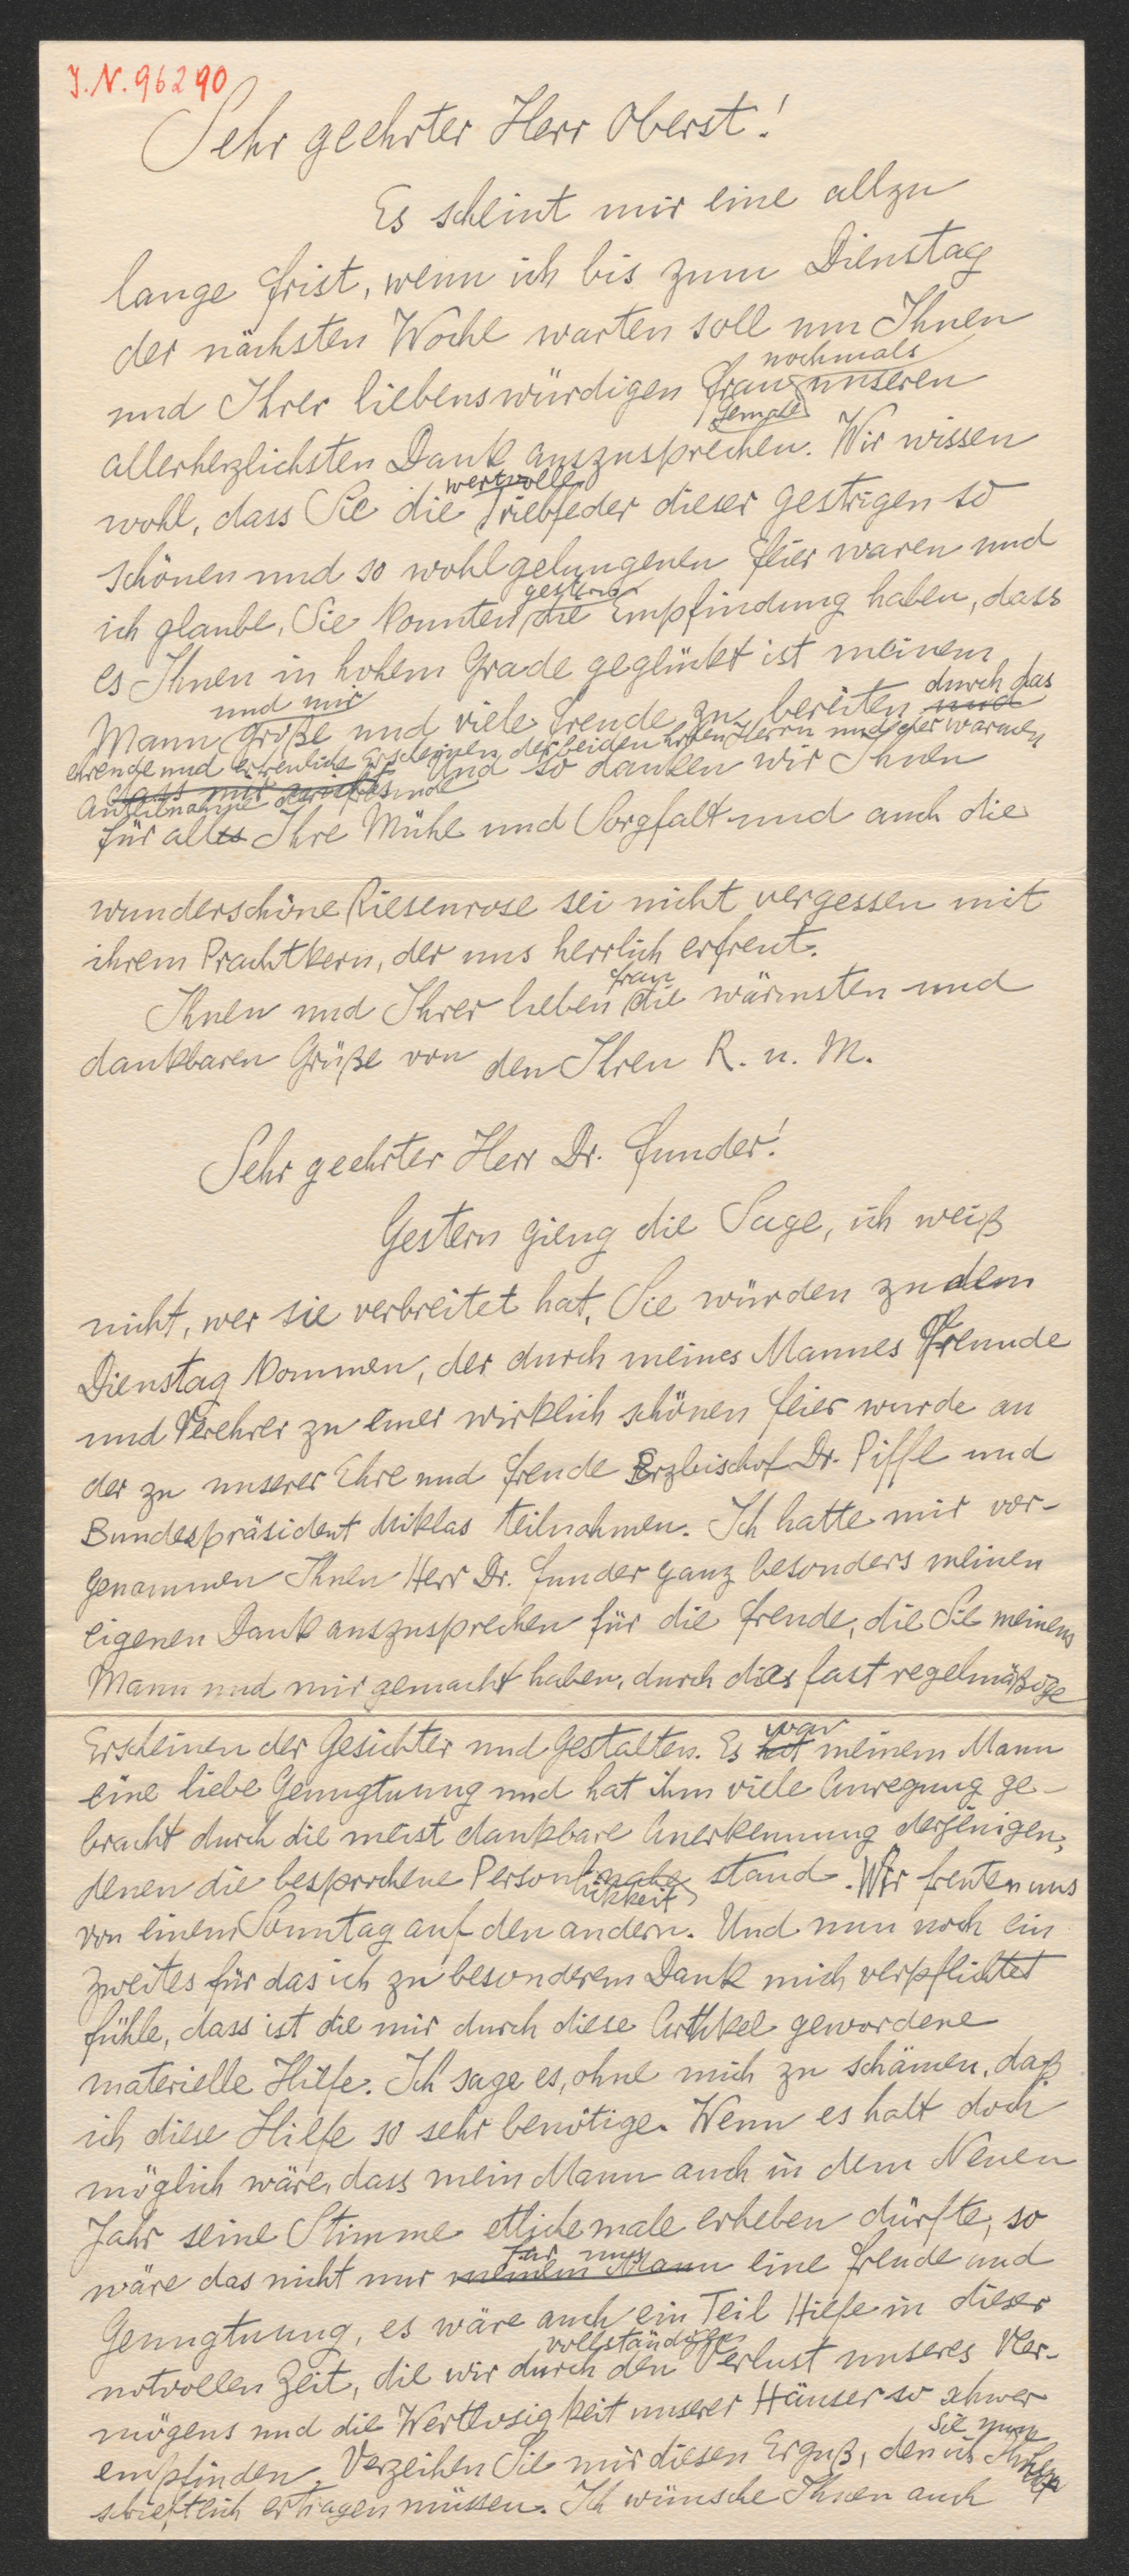 J.N. 96290
Sehr geehrter Herr Oberst!
Es scheint mir eine allzu
lange Frist, wenn ich bis zum Dienstag
der nächsten Woche warten soll um Ihnen
nochmals
und Ihrer liebenswürdigen Frau unseren
Gemalin
allerherzlichsten Dank auszusprechen. Wir wissen
wertvolle
wohl, dass Sie die Triebfeder dieser gestrigen so
schönen und so wohlgelungenen Feier waren und
gestern
ich glaube, Sie konnten die Empfindung haben, dass
es Ihnen in hohem Grade geglückt ist meinem
und mir durch das
Mann große und viele Freude zu bereiten und
ehrende und erfreuliche Erscheinen der beiden hohen Herrn und der warmen
dass mir Und so danken wir Ihnen
Anteilnahme der Freunde
für alles Ihre Mühe und Sorgfalt und auch die
wunderschöne Riesenrose sei nicht vergessen mit
ihrem Prachtkern, der uns herrlich erfreut.
Frau
Ihnen und Ihrer lieben die wärmsten und
dankbaren Grüße von den Ihren R. u. M.
Sehr geehrter Herr Dr. Funder!
Gestern gieng die Sage, ich weiß
nicht, wer sie verbreitet hat, Sie würden zu dem
Dienstag kommen, der durch meines Mannes Freunde
und Verehrer zu einer wirklich schönen Feier wurde an
der zu unserer Ehre und Freude Erzbischof Dr. Piffl und
Bundespräsident Miklas teilnahmen. Ich hatte mir vor-
genommen Ihnen Herr Dr. Funder ganz besonders meinen
eigenen Dank auszusprechen für die Freude, die Sie meinem
Mann und mir gemacht haben, durch das fast regelmäßige
Erscheinen der Gesichter und Gestalten. Es hat meinem Mann
war
eine liebe Genugtuung und hat ihm viele Anregung ge-
bracht durch die meist dankbare Anerkennung derjenigen,
denen die besprochene Persönlichkeit nahe stand. Wir freuten uns
von einem Sonntag auf den andern. Und nun noch ein
zweites für das ich zu besonderem Dank mich verpflichtet
fühle, dass ist die mir durch diese Artikel gewordene
materielle Hilfe. Ich sage es, ohne mich zu schämen, daß
ich diese Hilfe so sehr benötige. Wenn es halt doch
möglich wäre, dass mein Mann auch in dem Neuen
Jahr seine Stimme etlichemale erheben dürfte, so
für uns
wäre das nicht nur meinem Mann eine Freude und
Genugtuung, es wäre auch ein Teil Hilfe in dieser
vollständigen
notvollen Zeit, die wir durch den Verlust unseres Ver-
mögens und die Wertlosigkeit unserer Häuser so schwer
Sie nun
empfinden. Verzeihen Sie mir diesen Erguß, den ich Ihnen
schriftlich ertragen müssen. Ich wünsche Ihnen auch